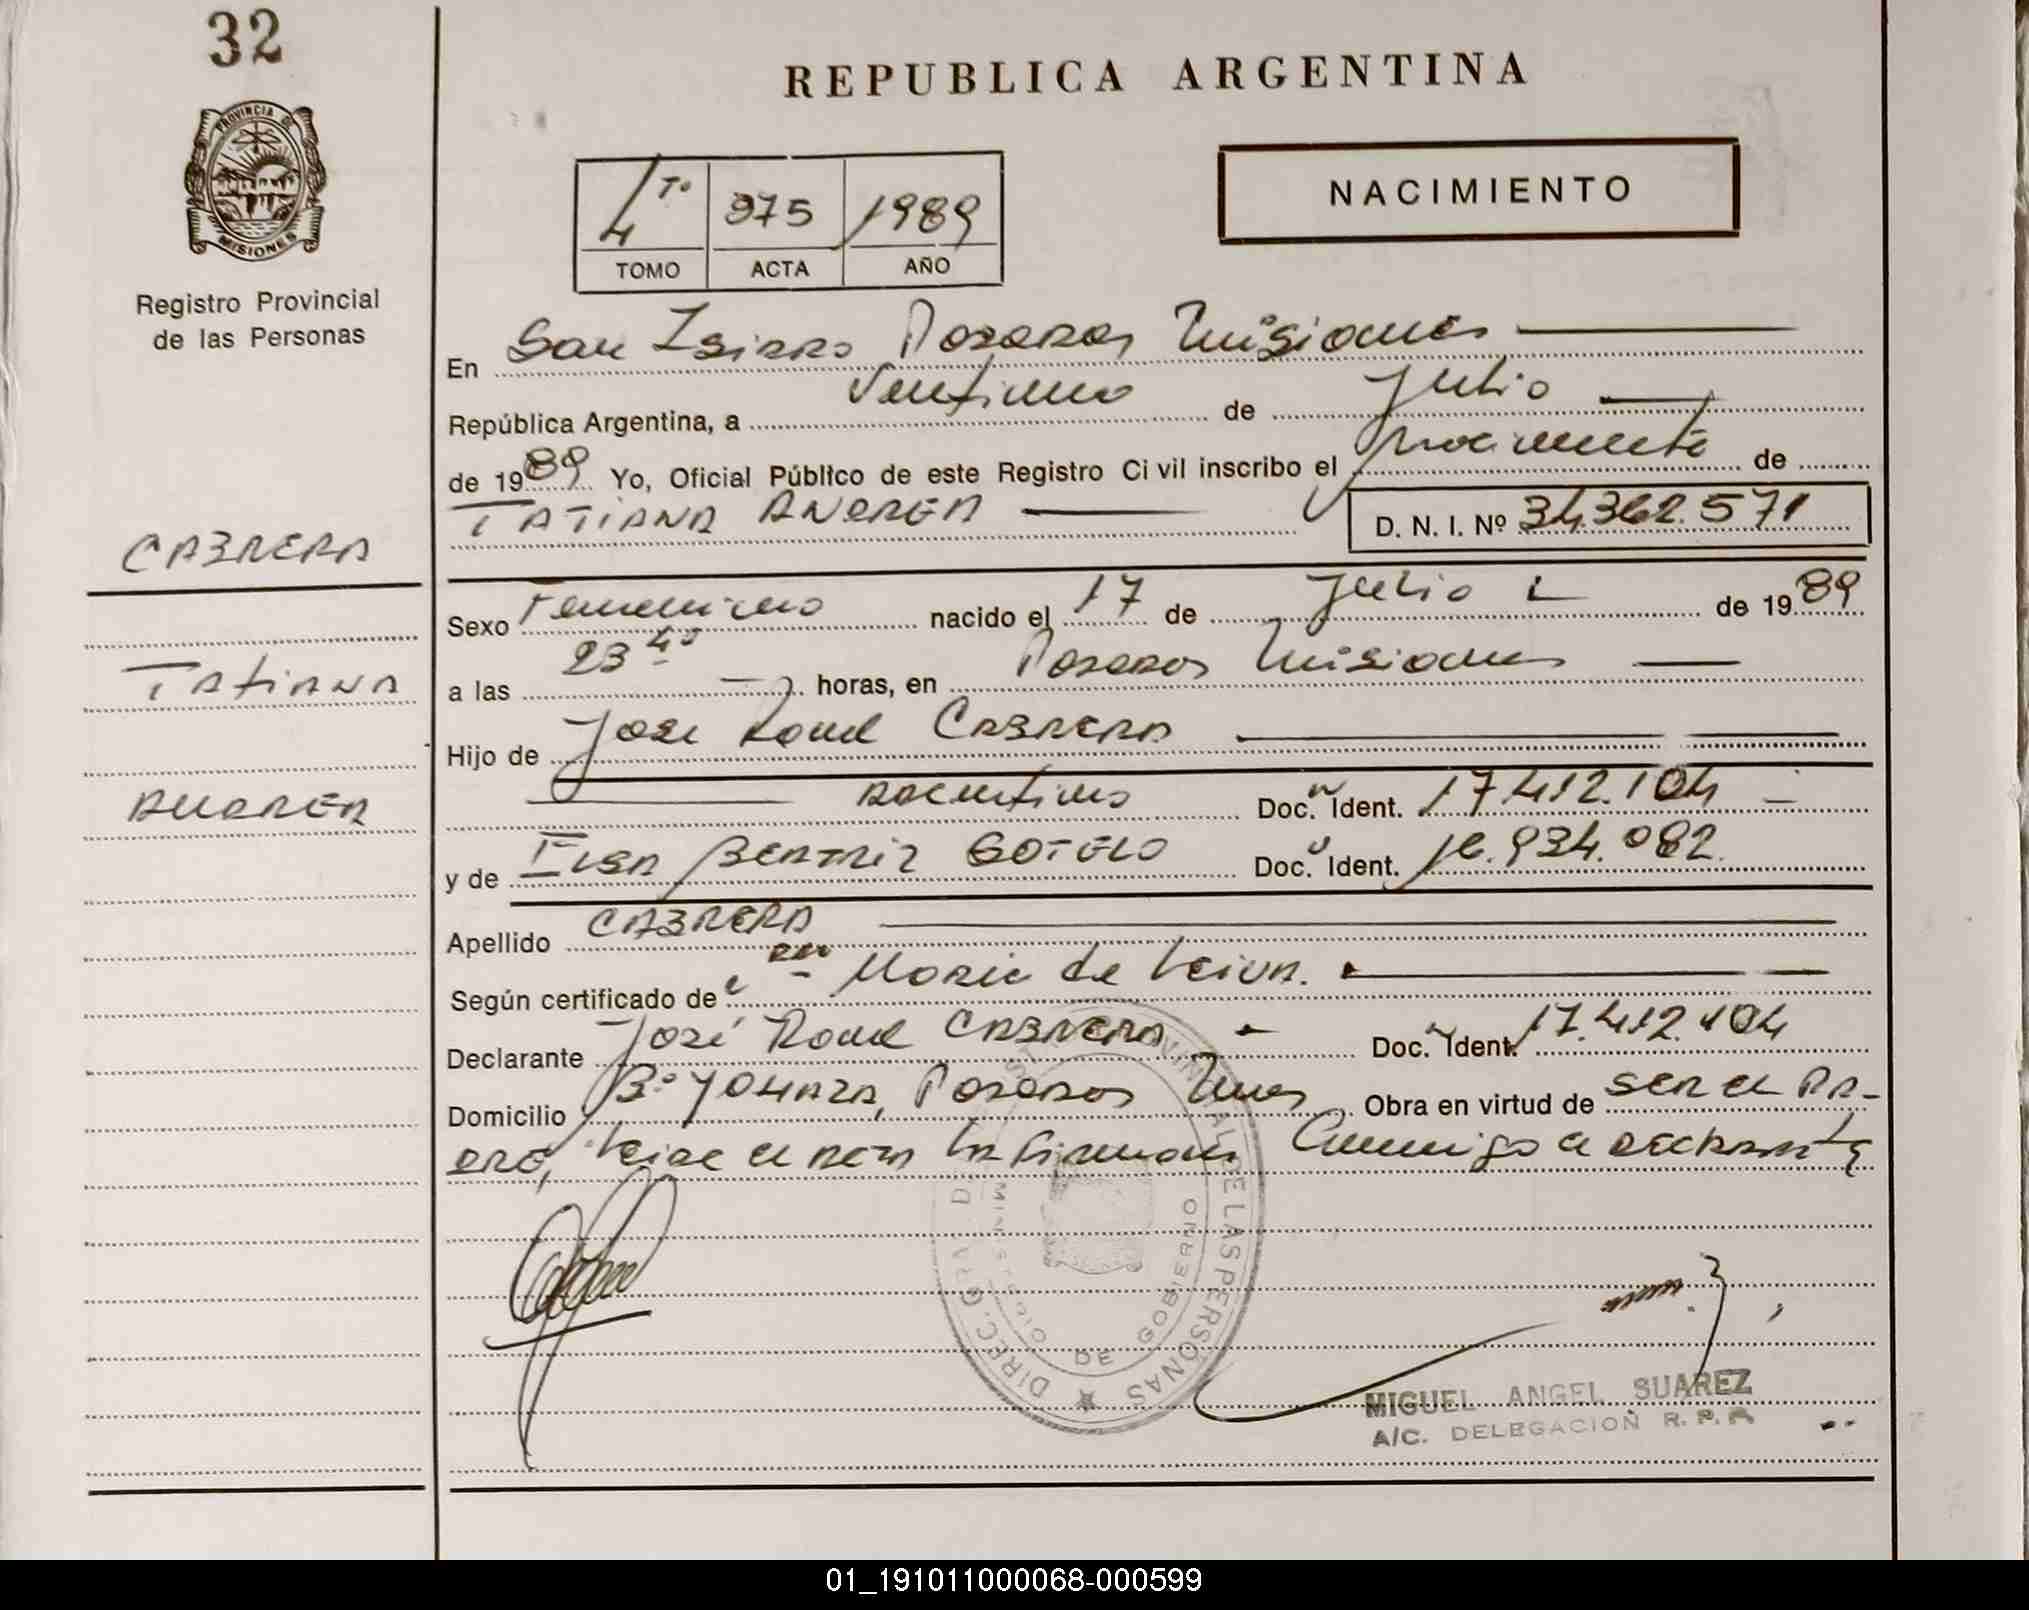 32
REPUBLICA ARGENTINA
PROVINCIA DE
MISIONES
Registro Provincial
de las Personas
4to 975 1989
TOMO ACTA AÑO
NACIMIENTO
En San Isidro Posadas Misiones
República Argentina, a Ventiuno de Julio
de 1989 Yo, Oficial Público de este Registro Civil inscribo el nacimiento de
TATIANA ANDREA D. N. I. Nº 34.362.571
CABRERA
TATIANA
ANDREA
Sexo Femenino nacido el 17 de Julio de 1989
a las 23 45 horas, en Posadas Misiones
Hijo de José Raul CABRERA
argentino Doc. Ident. 17.412.104
y de ELSA BEATRIZ SOTELO Doc. Ident. 16.934.082
Apellido CABRERA
Según certificado de Maria de Leiva.
Declarante José Raul CABRERA Doc. Ident. 17.412.104
Domicilio Bº YOHAZA, Posadas Mnes Obra en virtud de SER EL PA-
DRE, Leida el acta la firman Conmigo el declarante
DIREC. GRAL. PROVINCIAL DE LAS PERSONAS
MINISTERIO DE GOBIERNO
MIGUEL ANGEL SUAREZ
A/C. DELEGACION R. P. P.
01_191011000068-000599